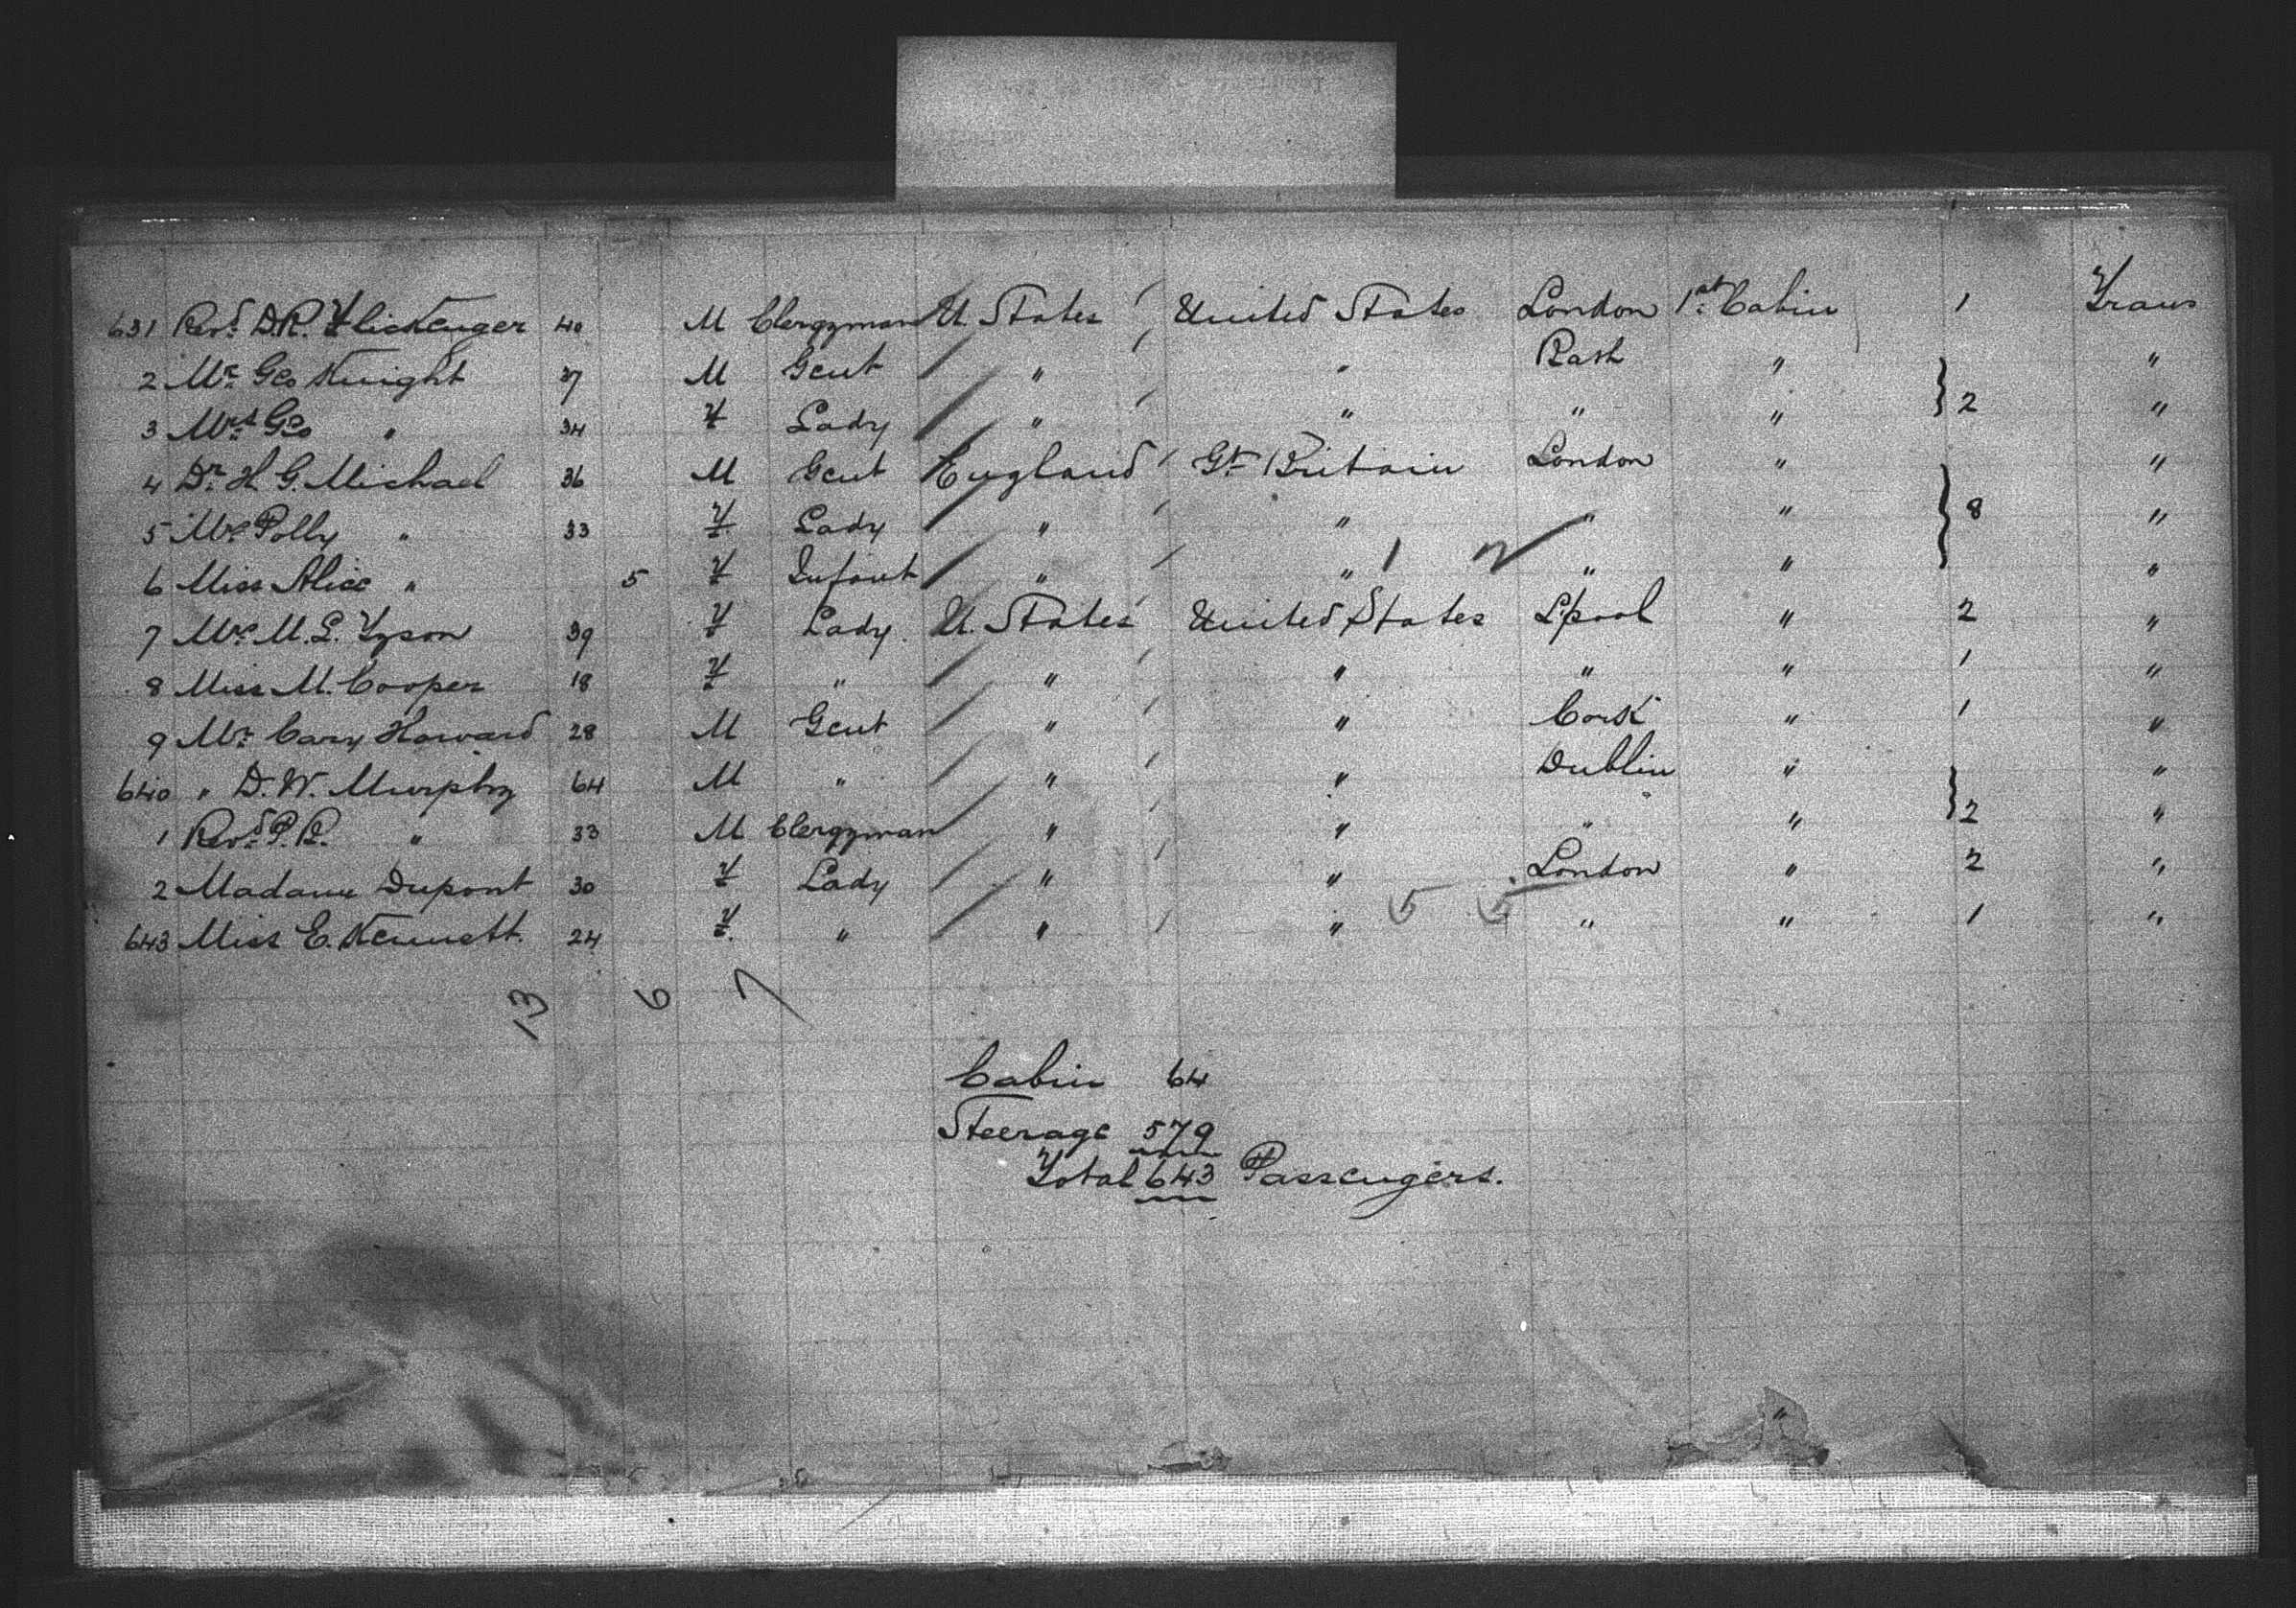 631 Revd. D.R. Flickenger 40 M Clergyman U. States United States London 1st Cabin 1 Trans
2 Mr. Geo Knight 37 M Gent " " " " "
3 Mrs Geo " 34 F Lady " " " " 2 "
4 Dr. H G. Michael 36 M Gent England Gt. Britain London " "
5 Mrs Polly " 33 F Lady " " " " 8 "
6 Miss Alice " 5 F Infant " " " " "
7 Mrs M. L. Tyson 39 F Lady U. States United States L'pool " 2 "
8 Miss M. Cooper 18 F " " " " " 1 "
9 Mr. Cary Howard 28 M Gent " " Cork " 1 "
640 " D. W. Murphy 64 M " " " Dublin " "
1 Revd. P. R. " 33 M Clergyman " " " " 2 "
2 Madame Dupont 30 F Lady " " London " 2 "
643 Miss E. Kennett. 24 F " " " " " 1 "
13 6 7
Cabin 64
Steerage 579
Total 643 Passengers.